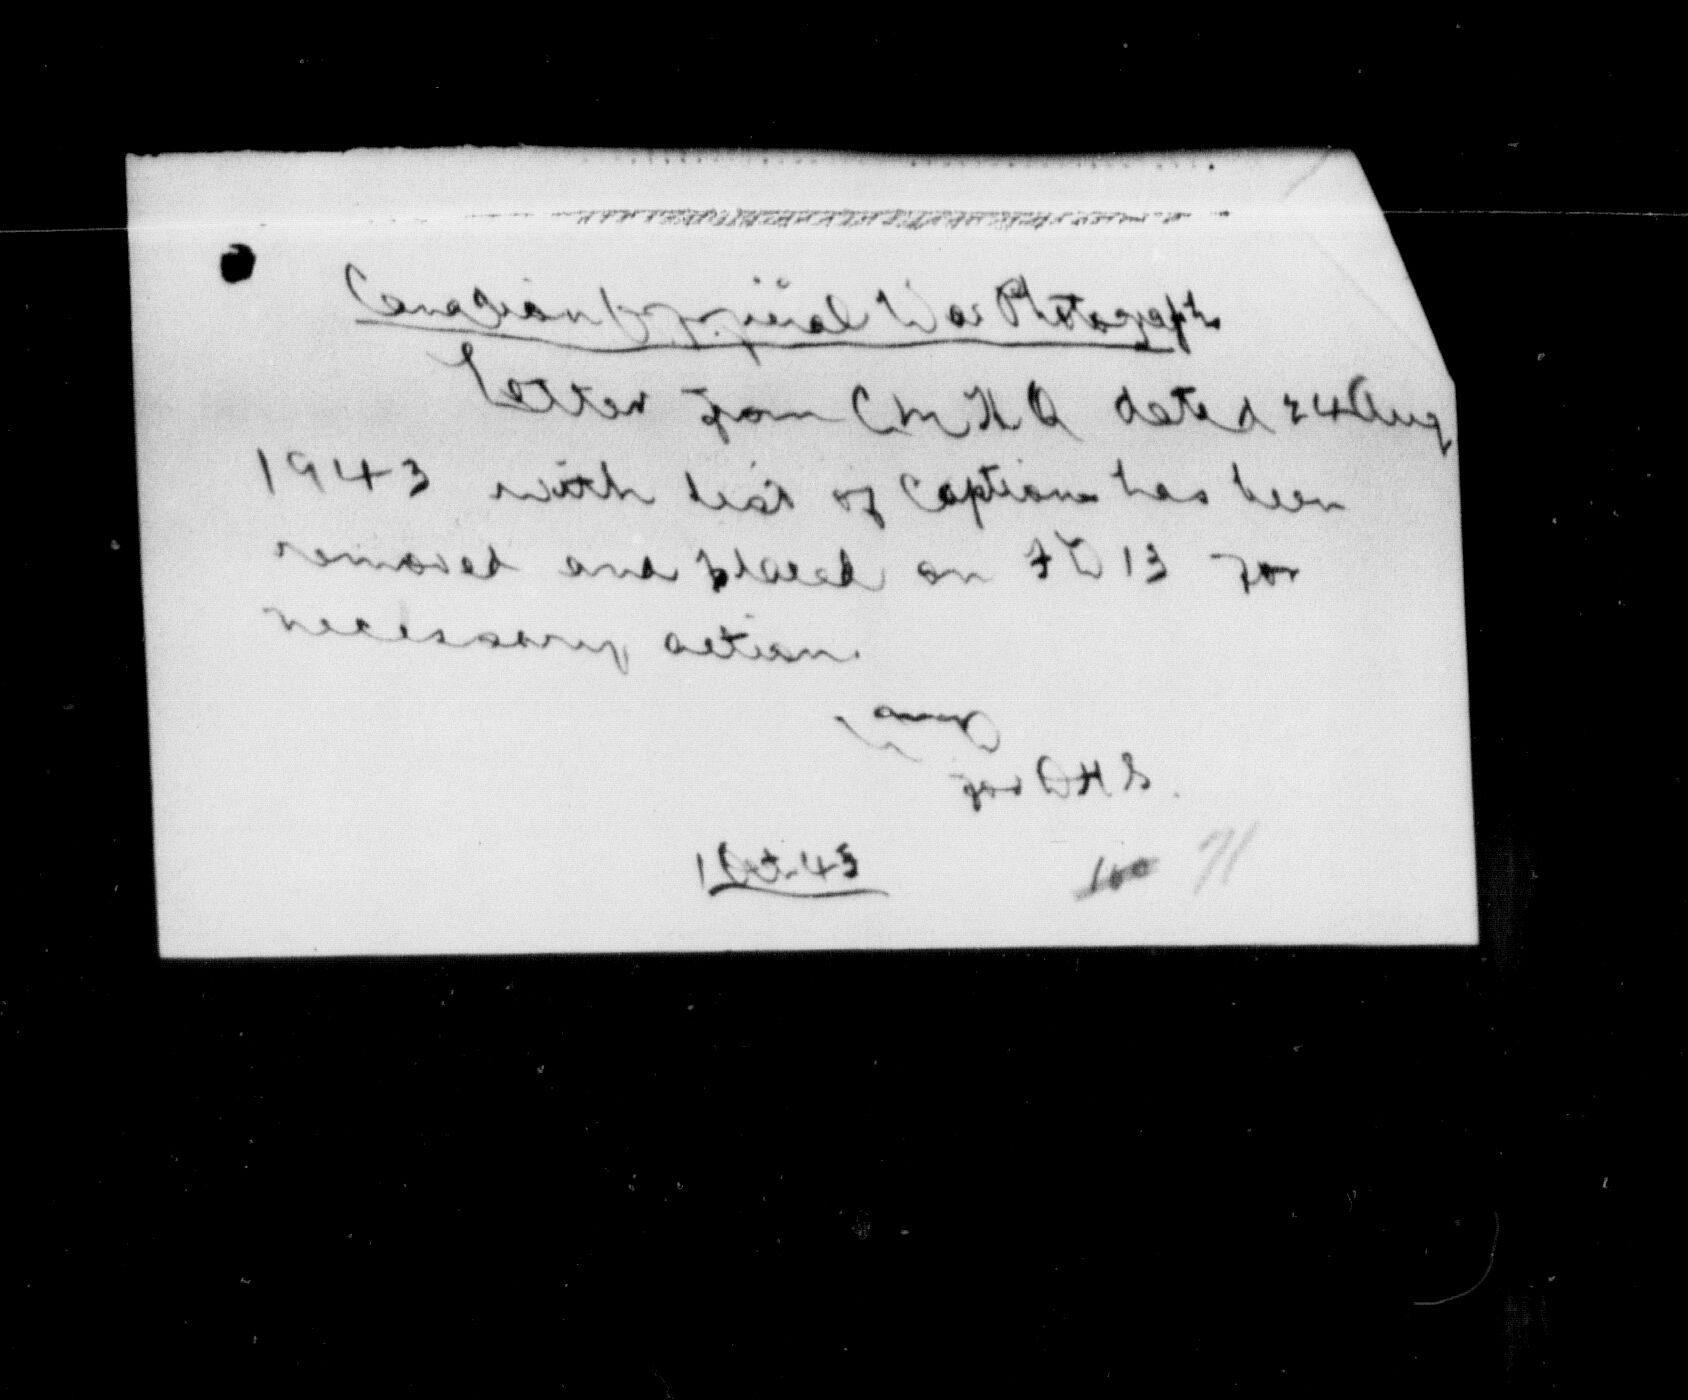 Canadian Official War Photograph
Letter from CMHQ dated 24 Aug
1943 with list of Captions has been
removed and placed on FD 13 for
necessary action.
for DHS.
1 Oct. 43
100 71